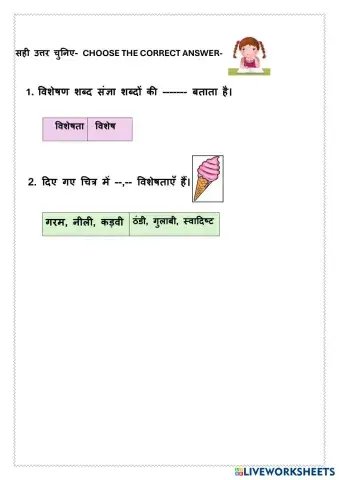 सही उत्तर चुनिए- CHOOSE THE CORRECT ANSWER-
1. विशेषण शब्द संज्ञा शब्दों की ------- बताता है।
विशेषता विशेष
2. दिए गए चित्र में --,-- विशेषताएँ हैं।
गरम, नीली, कड़वी ठंडी, गुलाबी, स्वादिष्ट
LIVEWORKSHEETS